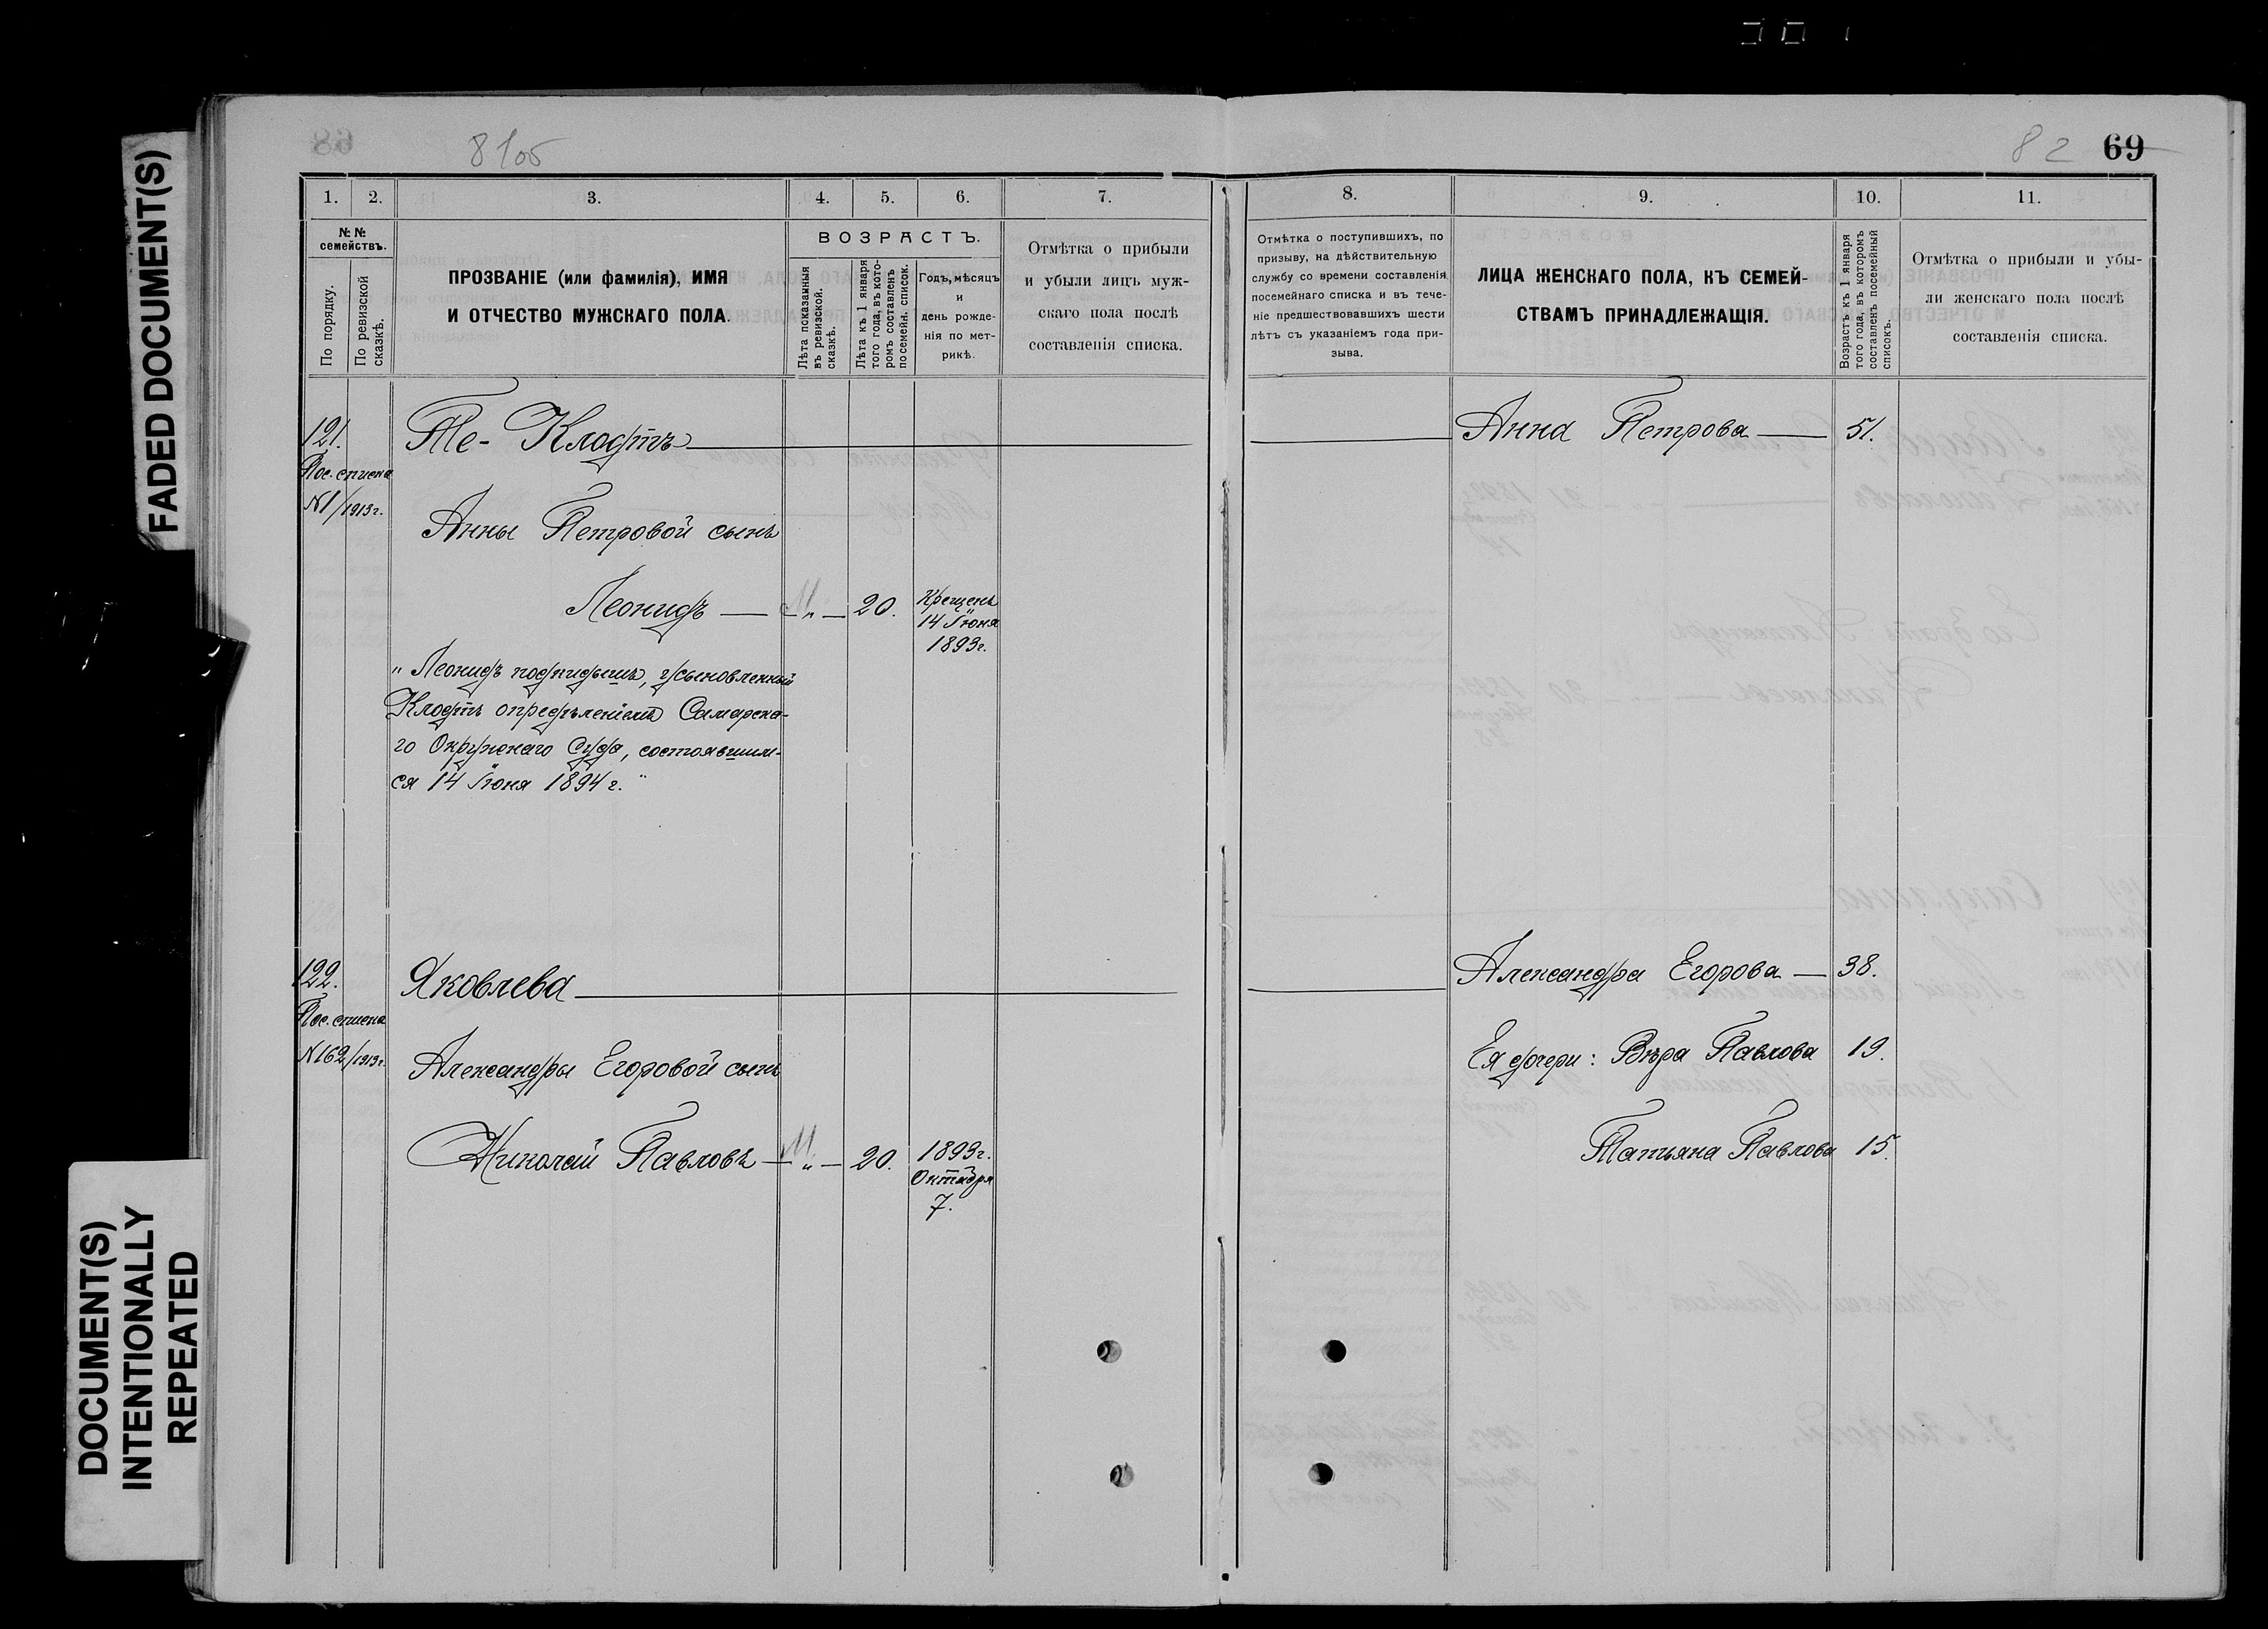 FADED DOCUMENT(S)
DOCUMENT(S)
INTENTIONALLY
REPEATED
8105
82 69
1. 2. 3. 4. 5. 6. 7.
№ №
семействъ.
По порядку.
По ревизской
сказкѣ.
ПРОЗВАНІЕ (или фамилія), ИМЯ
И ОТЧЕСТВО МУЖСКАГО ПОЛА.
ВОЗРАСТЪ.
Лѣта показанныя
въ ревизской.
сказкѣ.
Лѣта къ 1 января
того года, въ кото-
ромъ составленъ
посемейн. список.
Годъ, мѣсяцъ
и
день рожде-
нія по мет-
рикѣ.
Отмѣтка о прибыли
и убыли лицъ муж-
скаго пола послѣ
составленія списка.
121.
Пос. списка
№1/1913 г.
Те-Клодтъ
Анны Петровой сынъ
Леонидъ — М „ — 20.
Крещенъ
14 Іюня
1893 г.
„Леонидъ подкидышъ, усыновленный
Клодтъ опредѣленіемъ Самарска-
го Окружнаго Суда, состоявшим-
ся 14 Іюня 1894 г.“
122.
Пос. списка
№162/1913 г.
Яковлева
Александры Егоровой сынъ
Николай Павловъ — М „ — 20.
1893 г.
Октября
7.
8. 9. 10. 11.
Отмѣтка о поступившихъ, по
призыву, на дѣйствительную
службу со времени составленія
посемейнаго списка и въ тече-
ніе предшествовавшихъ шести
лѣтъ съ указаніемъ года при-
зыва.
ЛИЦА ЖЕНСКАГО ПОЛА, КЪ СЕМЕЙ-
СТВАМЪ ПРИНАДЛЕЖАЩІЯ.
Возрастъ къ 1 января
того года, въ которомъ
составленъ посемейный
списокъ.
Отмѣтка о прибыли и убы-
ли женскаго пола послѣ
составленія списка.
Анна Петрова — 51.
Александра Егорова — 38.
Ея дочери: Вѣра Павлова 19.
Татьяна Павлова 15.